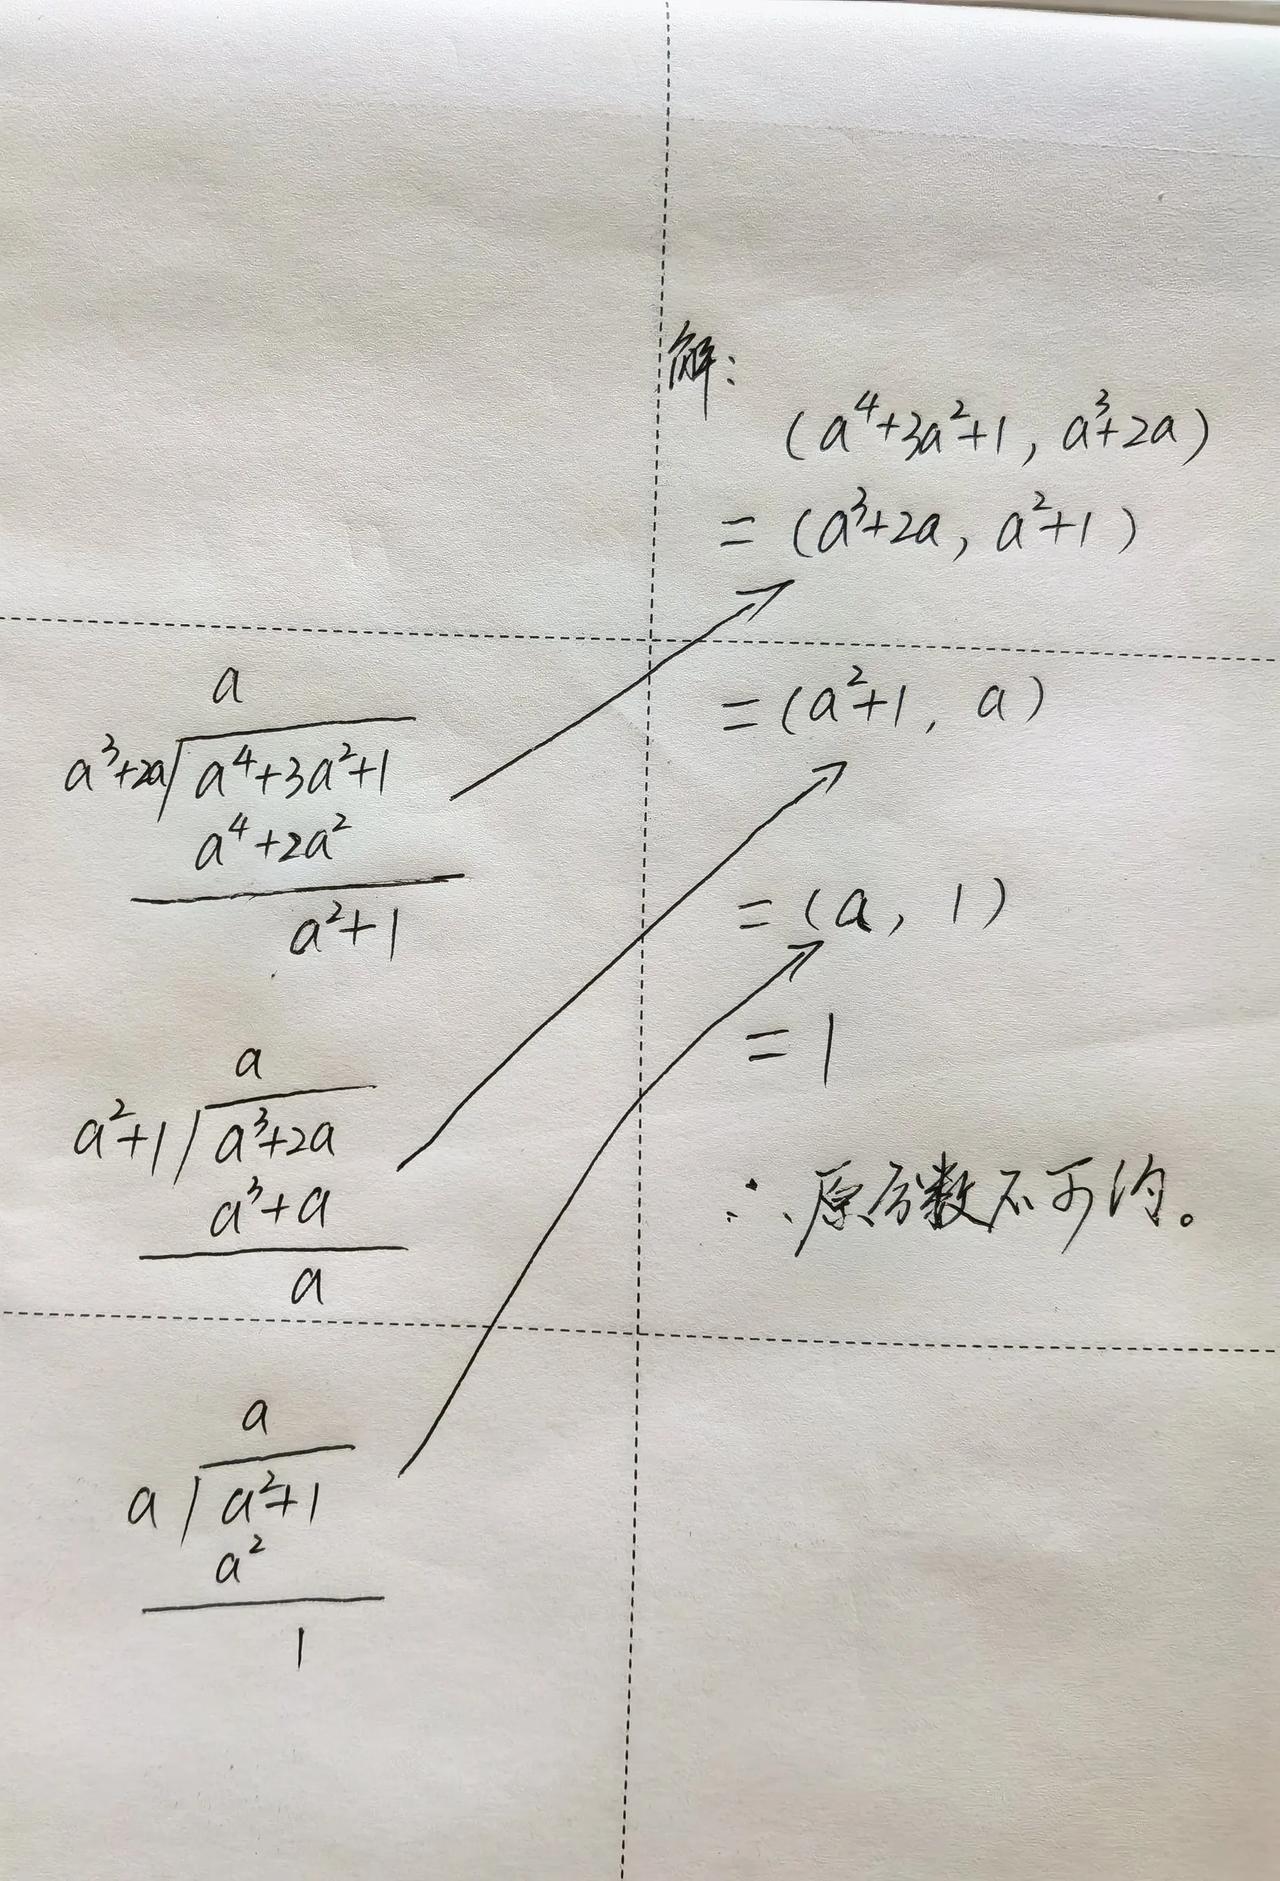 解:
(a⁴+3a²+1, a³+2a)
= (a³+2a, a²+1)
= (a²+1, a)
= (a, 1)
= 1
∴原分数不可约。
a
a³+2a / a⁴+3a²+1
a⁴+2a²
a²+1
a
a²+1 / a³+2a
a³+a
a
a
a / a²+1
a²
1